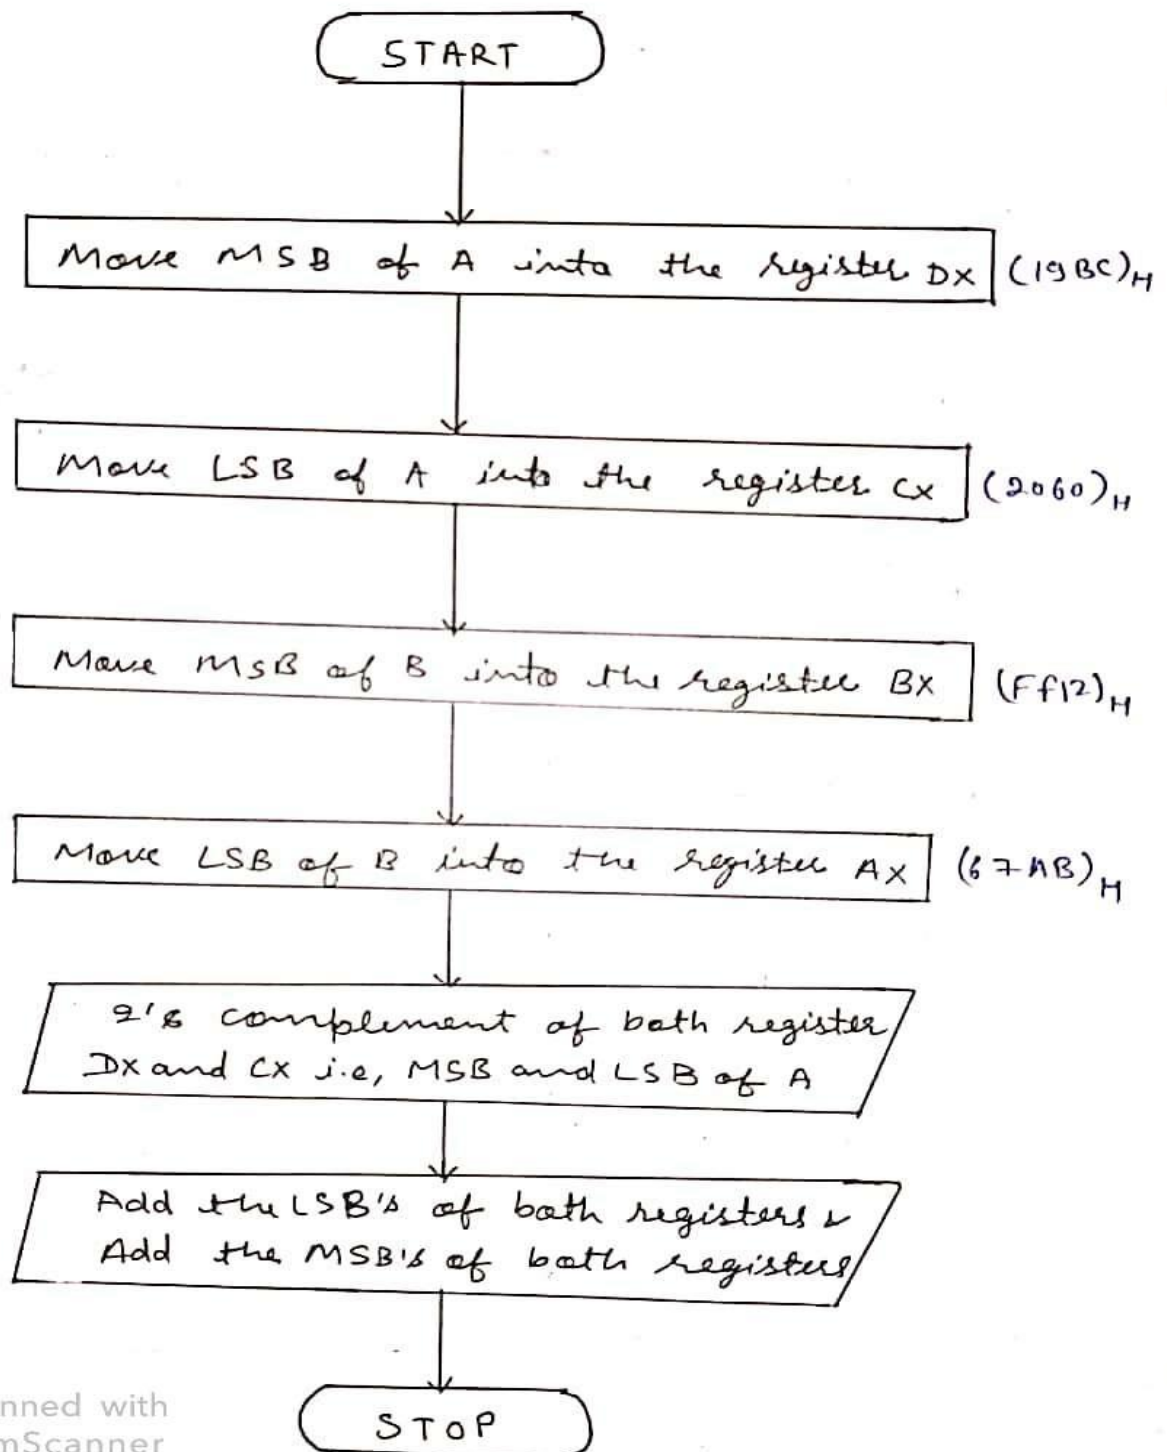 START
Move MSB of A into the register DX (19BC)H
Move LSB of A into the register CX (2060)H
Move MSB of B into the register BX (Ff12)H
Move LSB of B into the register AX (67AB)H
2's complement of both register
DX and CX i.e, MSB and LSB of A
Add the LSB's of both registers &
Add the MSB's of both registers
STOP
nned with
mScanner